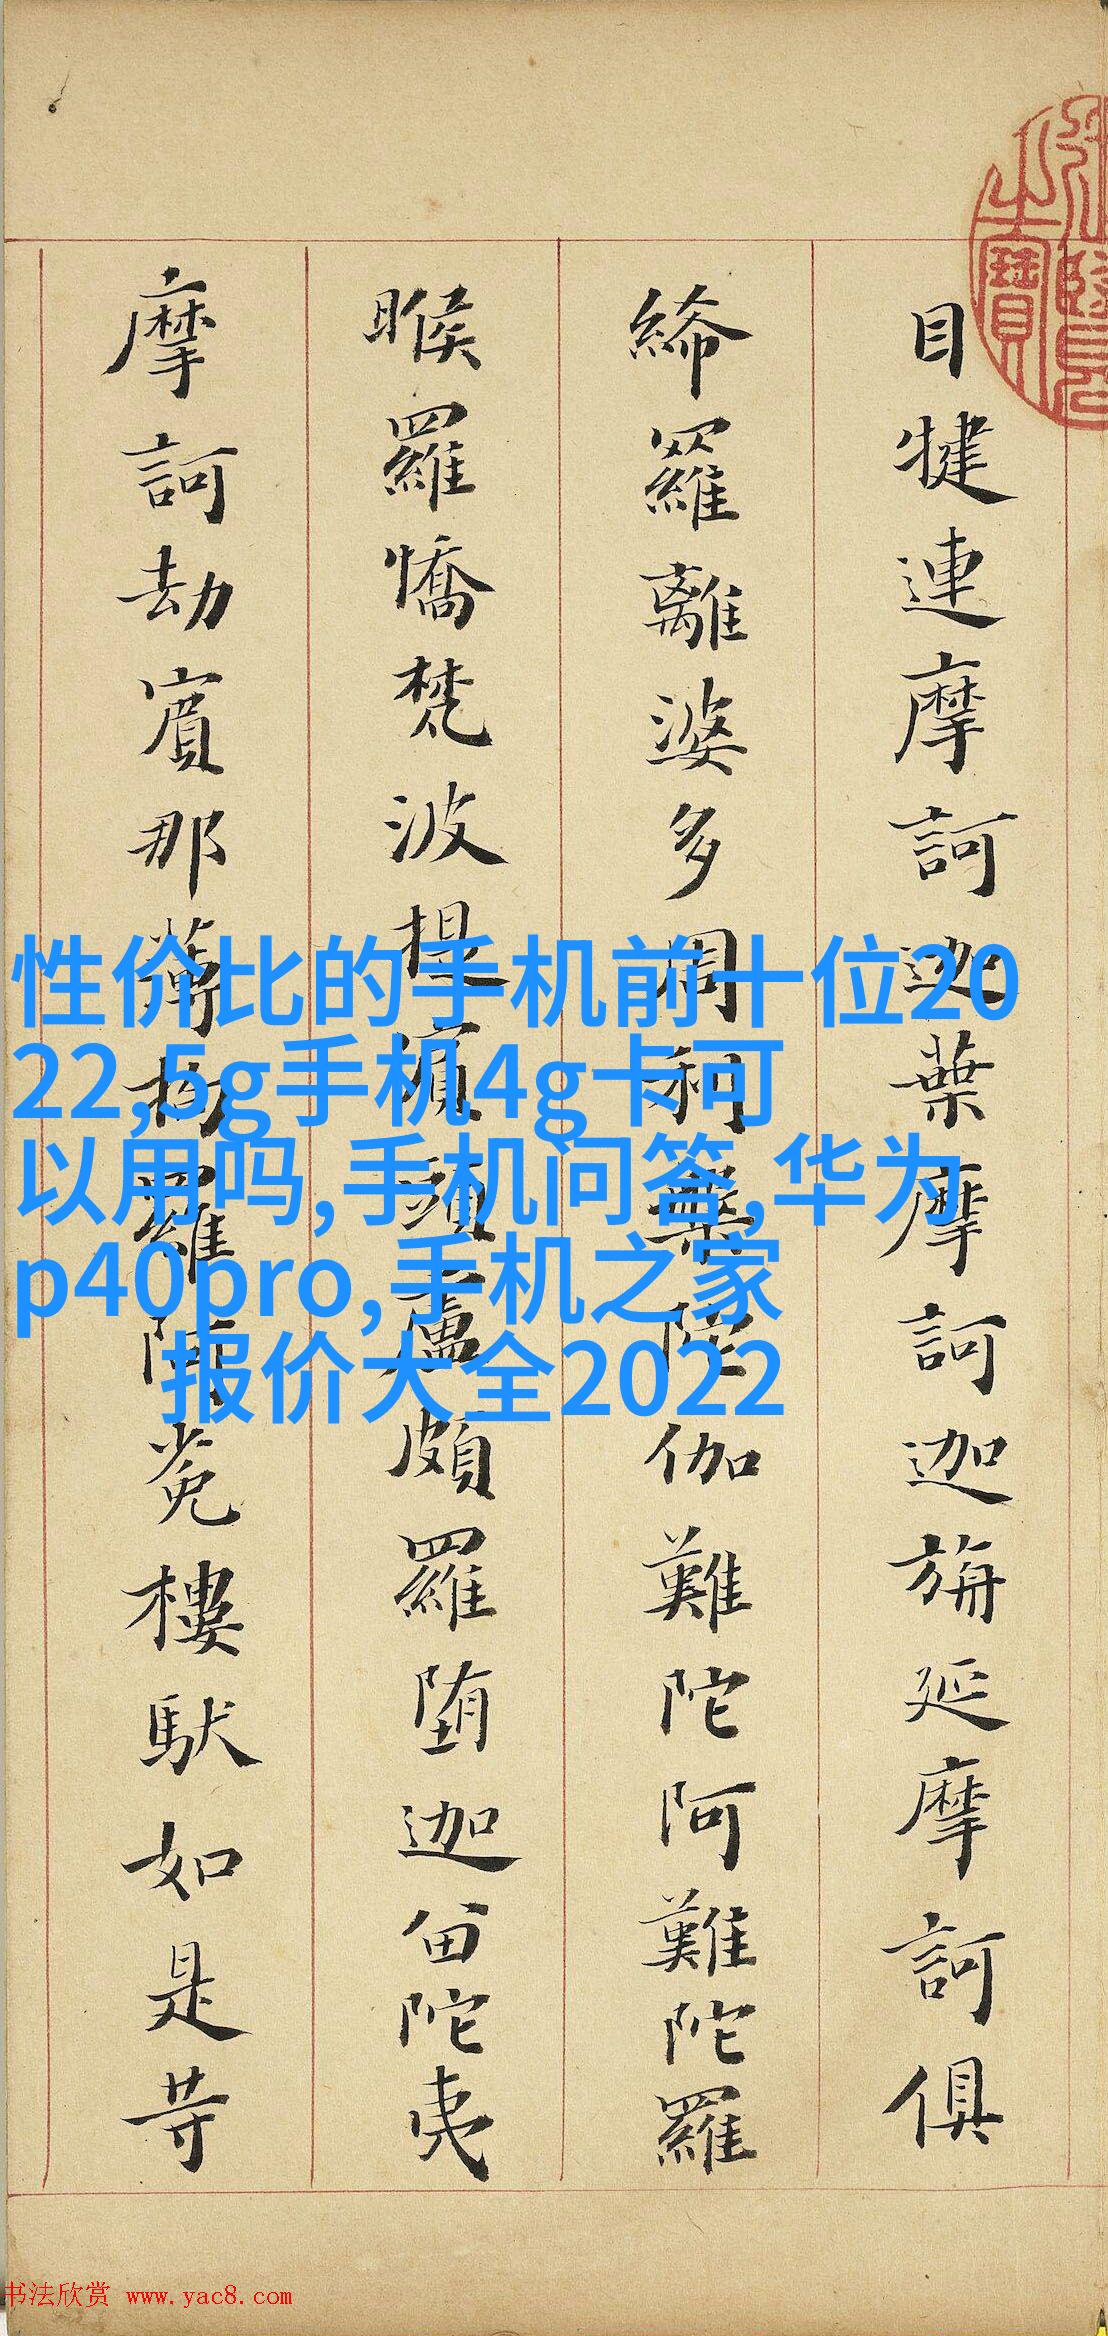 目犍連摩訶迦葉摩訶迦旃延摩訶俱
絺羅離婆多周利槃陀伽難陀阿難陀羅
睺羅憍梵波提濱頭盧頗羅堕迦留陀夷
摩訶劫賓那薄拘羅阿㝹樓馱如是等
性价比的手机前十位20
22,5g手机4g卡可
以用吗,手机问答,华为
p40pro,手机之家
报价大全2022
书法欣赏 www.yac8.com